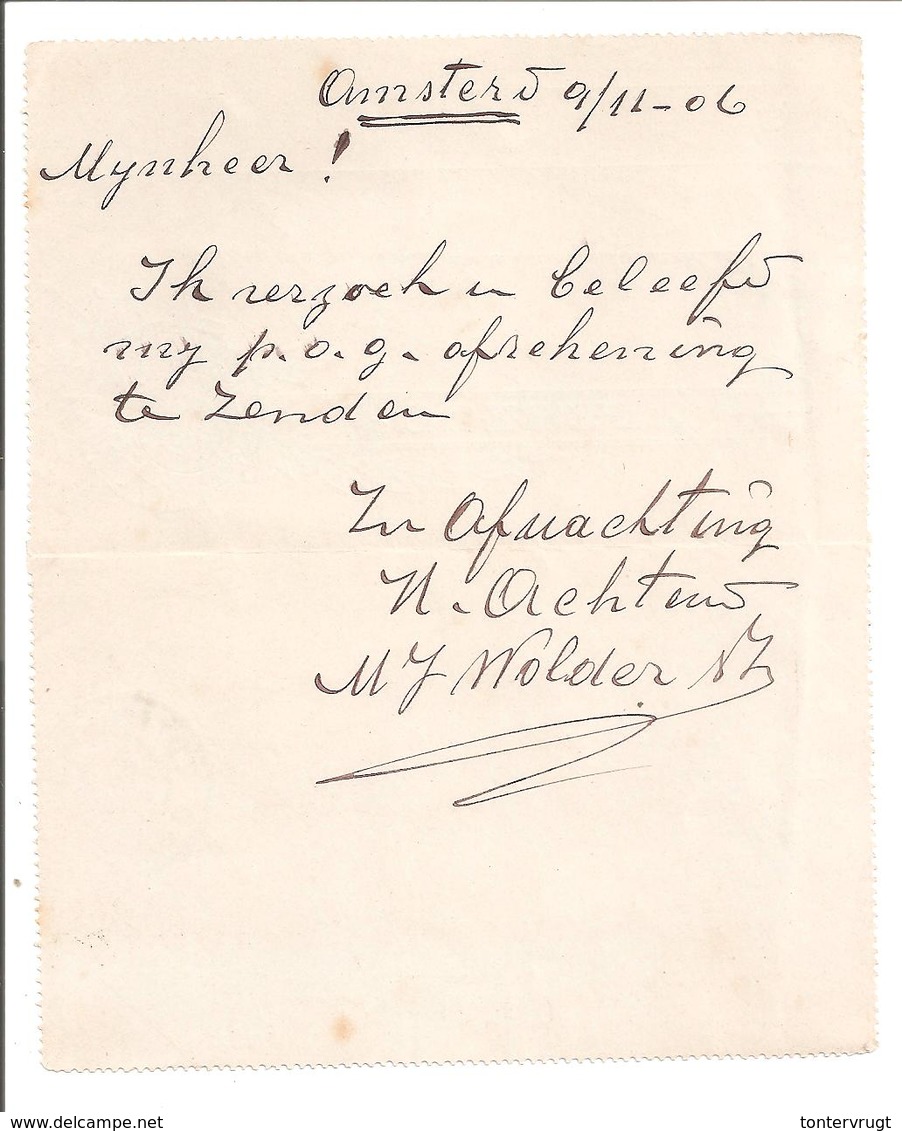 Amsterd 9/11-06
Mynheer !
Ik verzoek u beleefd
my p.o.g. afrekening
te zenden
In Afwachting
H. Achtend
M J Wolder
delcampe.net
tontervrugt